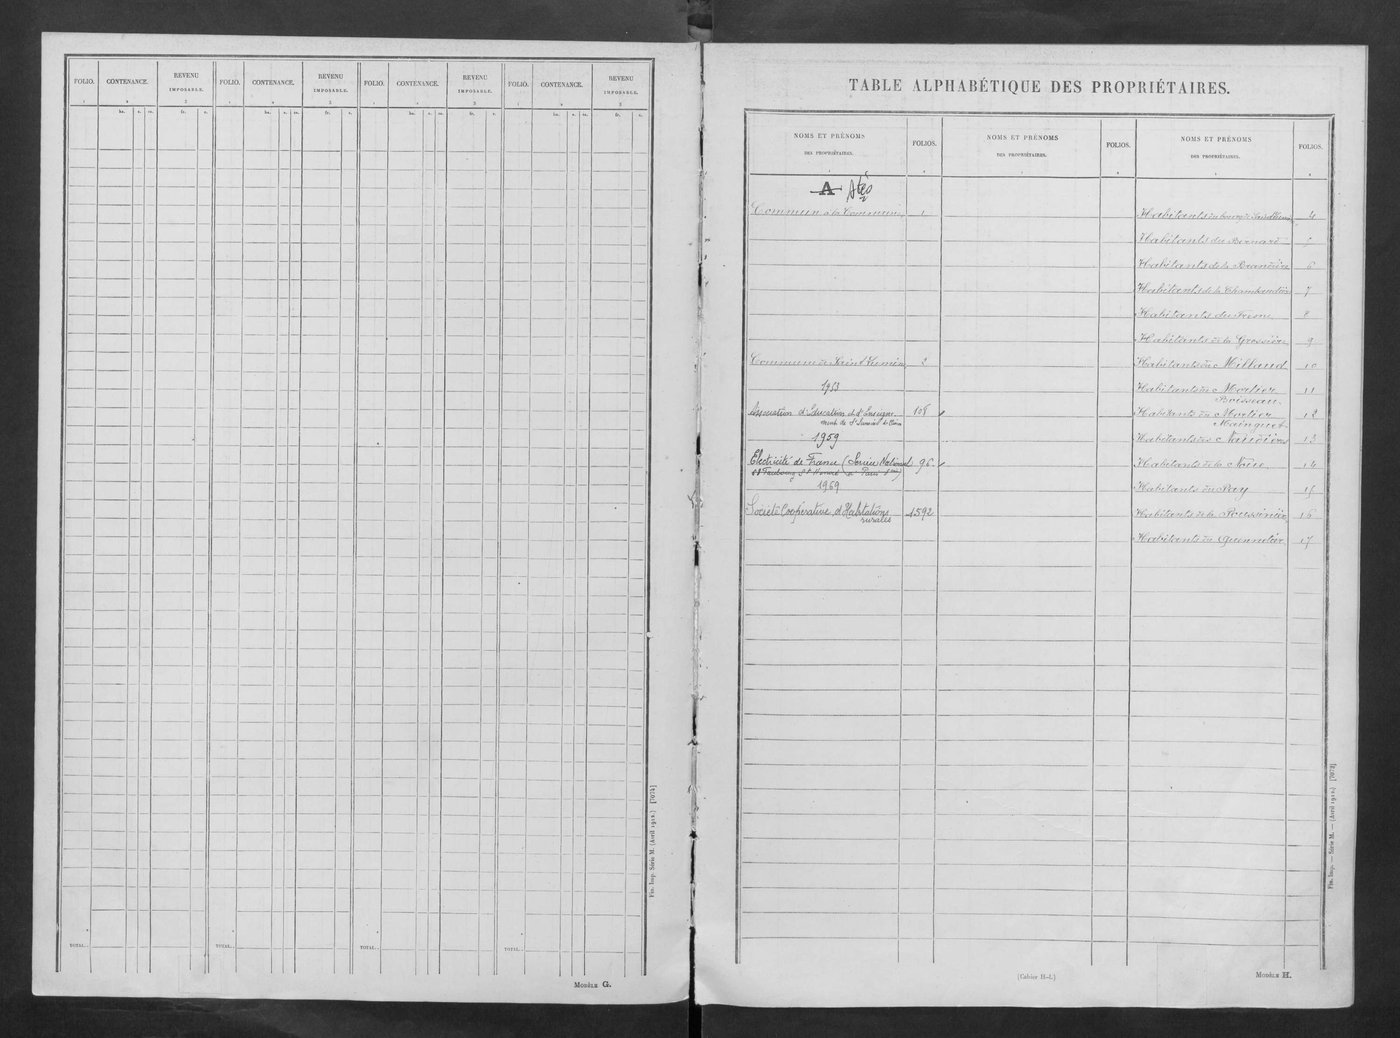 FOLIO. CONTENANCE. REVENU IMPOSABLE. FOLIO. CONTENANCE. REVENU IMPOSABLE. FOLIO. CONTENANCE. REVENU IMPOSABLE. FOLIO. CONTENANCE. REVENU IMPOSABLE.
1 2 3 1 2 3 1 2 3 1 2 3
ha. a. ca. fr. c. ha. a. ca. fr. c. ha. a. ca. fr. c. ha. a. ca. fr. c.
TOTAL.. TOTAL.. TOTAL.. TOTAL..
Fin. Imp. Série M. (Avril 1912.) [7074]
MODÈLE G.
TABLE ALPHABÉTIQUE DES PROPRIÉTAIRES.
NOMS ET PRÉNOMS
DES PROPRIÉTAIRES.
FOLIOS.
NOMS ET PRÉNOMS
DES PROPRIÉTAIRES.
FOLIOS.
NOMS ET PRÉNOMS
DES PROPRIÉTAIRES.
FOLIOS.
A
Commun à la Commune 1
Commune de Saint Sumin 2
1953
Association d'Education et d'Enseigne 108
ment de St
1959
Electricité de France (Service National 96
Faubourg St Honoré à Paris
1969
Société Coopérative d'Habitations 1592
rurales
Habitants du bourg de 4
Habitants du Bernard 5
Habitants de la 6
Habitants de la 7
Habitants du Fresne 8
Habitants de la 9
Habitants du Millaud 10
Habitants du Mortier 11
Boisseau
Habitants du Mortier 12
Mainguet
Habitants des 13
Habitants de la Noue 14
Habitants du Pay 15
Habitants de la 16
Habitants du 17
(Cahier H-L)
MODÈLE H.
Fin. Imp. — Série M. — (Avril 1912.) [7073]